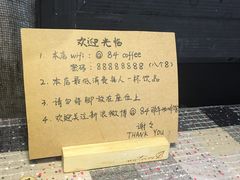 欢迎光临
1. 本店 wifi: @ 84 coffee
密码: 88888888 (八个8)
2. 本店最低消费每人一杯饮品
3. 请勿将脚放在座位上
4. 欢迎关注新浪微博 @ 84
谢谢
THANK YOU